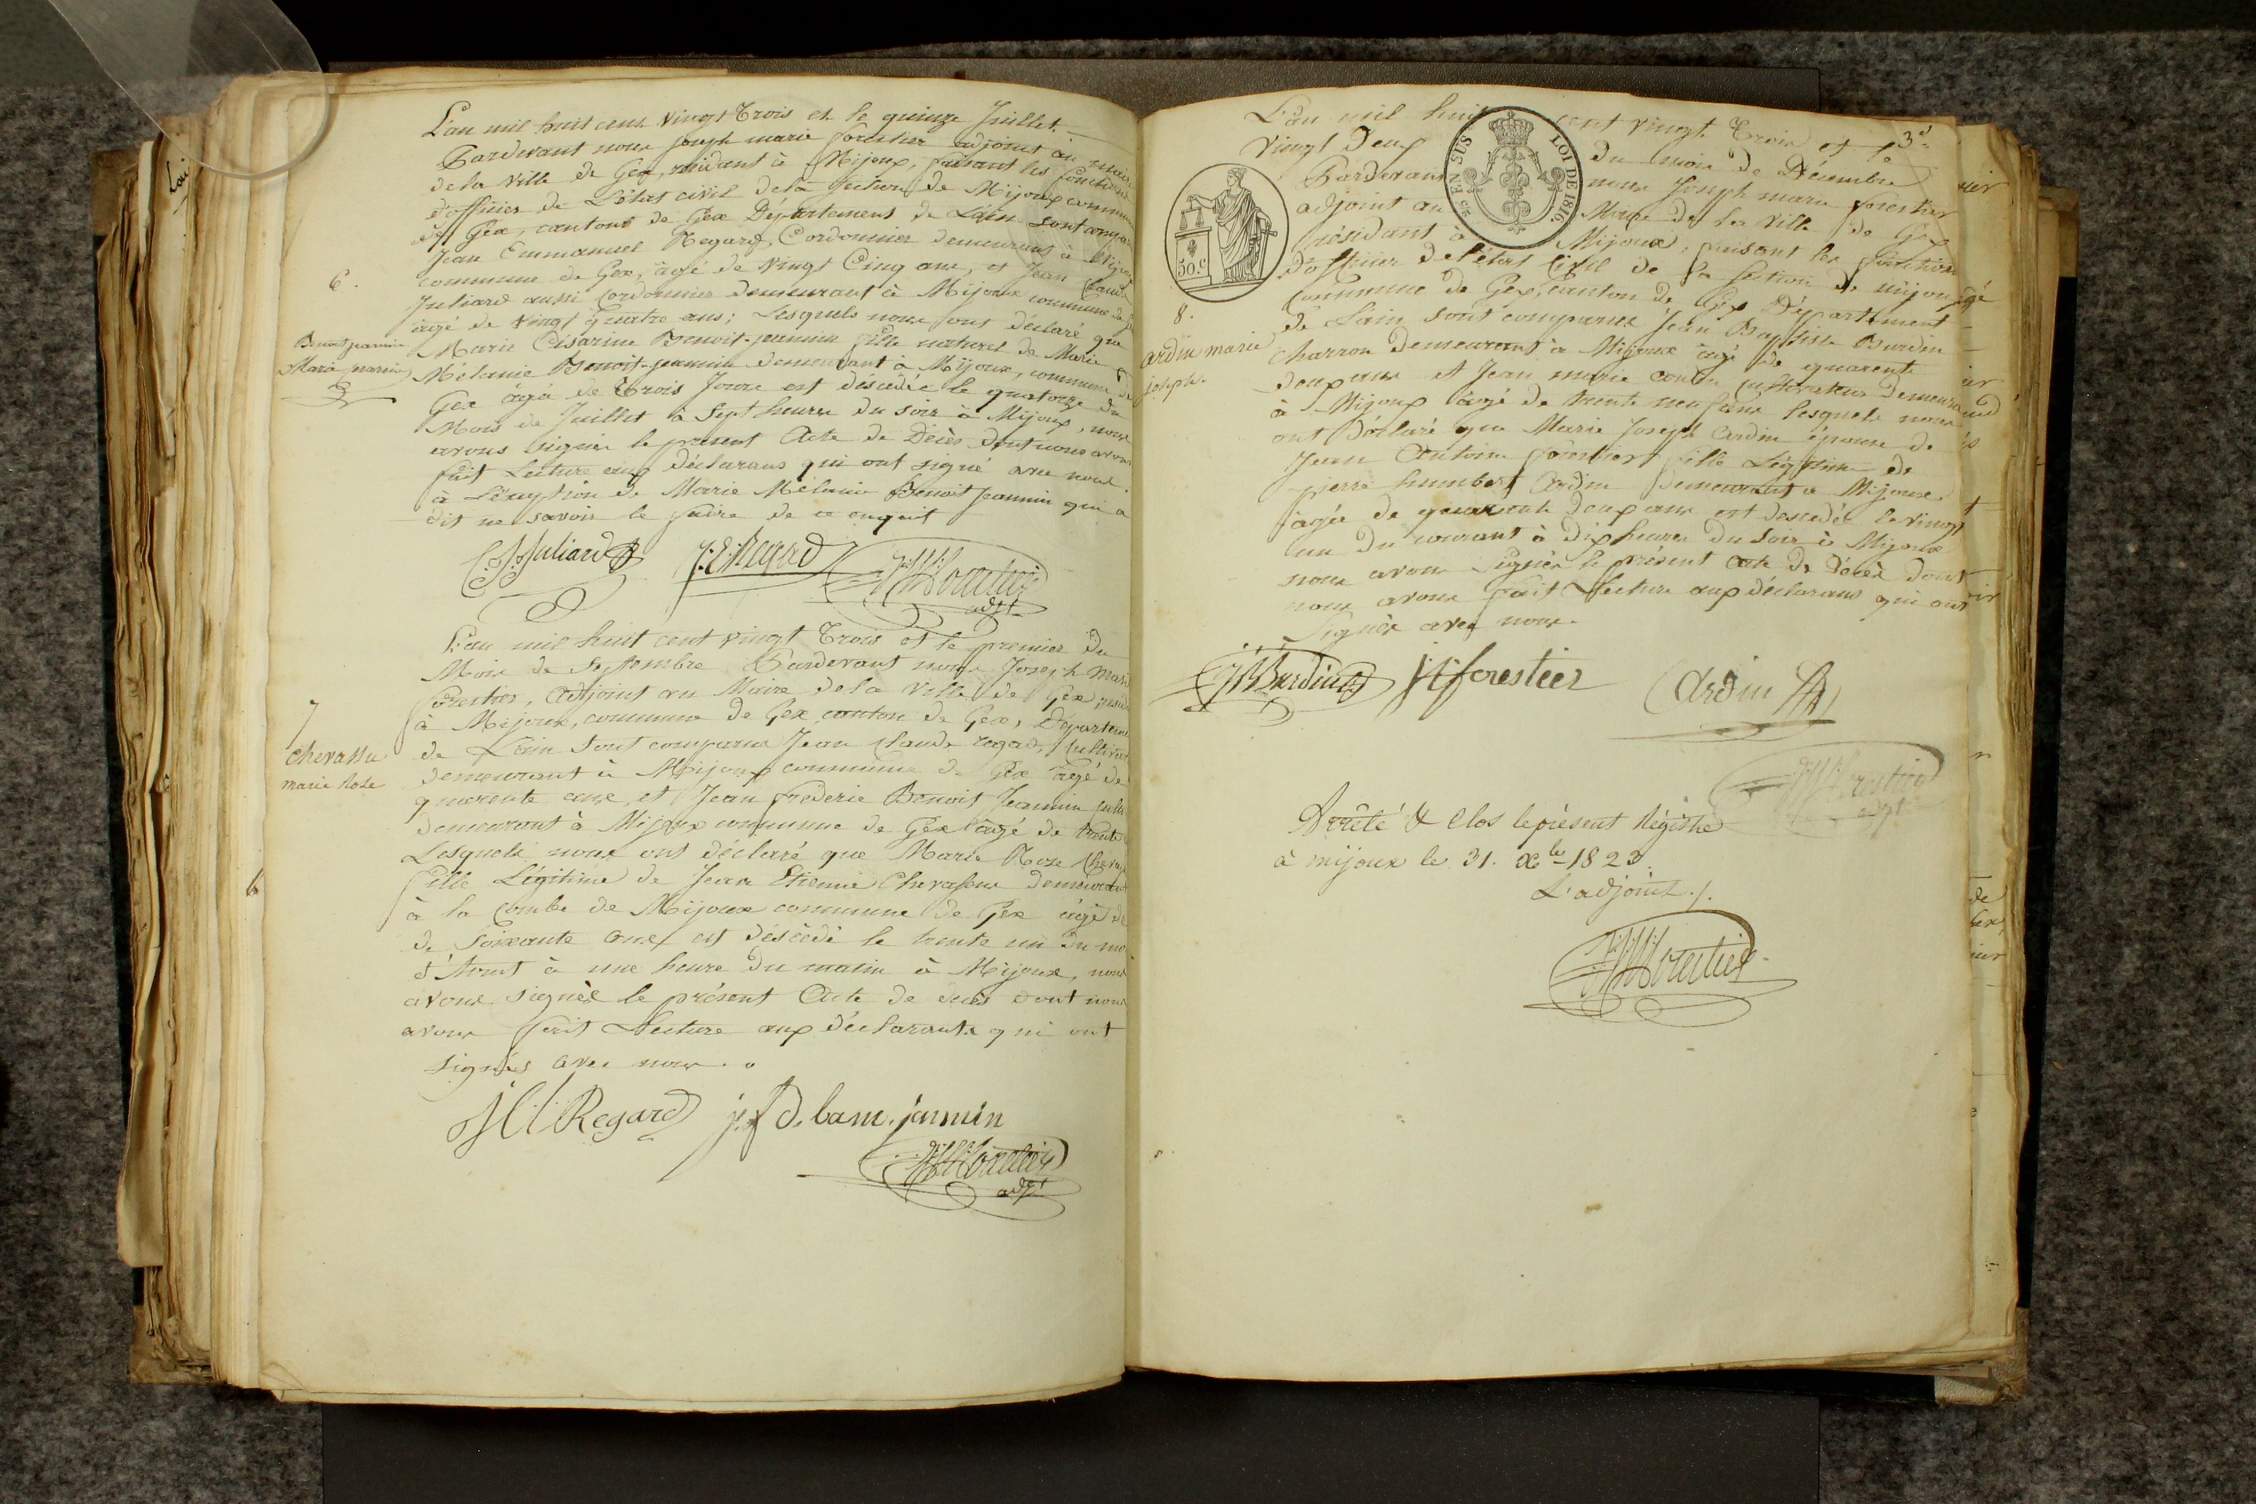 L'an mil huit cent vingt trois et le quinze Juillet
Pardevant nous Joseph marie forestier adjoint au maire
de la ville de Gex, résidant à Mijoux, faisant les fonctions
d'officier de L'état civil de la section de Mijoux commune
de Gex, canton de Gex Département de L'ain sont comparus
Jean Emmanuel Regard, Cordonnier demeurant à Mijoux
commune de Gex, âgé de vingt Cinq ans, et Jean Claude
6.
Juliard aussi Cordonnier demeurant à Mijoux commune de Gex
âgé de vingt quatre ans; Lesquels nous ont déclaré que
Benoit jeannin
Marie Césarine Benoit-jeannin fille naturel de Marie
Maria
Mélanie Benoit-jeannin demeurant à Mijoux, commune de
Gex âgé de trois Jours est déscedée le quatorze du
Mois de Juillet à Sept heures du soir à Mijoux, nous
avons signés le présent Acte de Décès dont nous avons
fait Lecture aux déclarans qui ont signé avec nous
à L'éxeption de Marie Mélanie Benoit Jeannin qui a
dit ne savoir le faire de ce enquit
C.J. Juliard J: E: Regard J M forestier
adjt
L'an mil huit cent vingt trois et le premier du
Mois de Septembre Pardevant nous Joseph Marie
forestier, Adjoint au Maire de la ville de Gex résidant
7
à Mijoux, commune de Gex canton de Gex, Département
chevassu
de L'ain sont comparus Jean Claude regard, Cultivateur
marie Rose
demeurant à Mijoux commune de Gex âgé de
quarente ans, et Jean frederic Benoit Jeannin
demeurant à Mijoux commune de Gex âgé de trente
Lesquels nous ont déclaré que Marie Rose Chevassu
fille Légitime de Jean Etienne Chevassus demeurant
à la Combe de Mijoux commune de Gex âgé de
de soixante ans est déscédé le trente un du mois
d'Aout à une heure du matin à Mijoux, nous
avons signés le présent Acte de décès dont nous
avons fait Lecture aux déclarants qui ont
signés avec nous.
J Cl Regard j. f d. bam. jannin
J M forestier
adjt
3e
L'an mil huit cent vingt trois et le
vingt Deux du mois de Décembre
Pardevant nous Joseph marie forestier
adjoint au Maire de la ville de Gex
résidant à Mijoux, faisant les fonctions
EN SUS LOI DE 1816.
50 C
d'officier de l'état Civil de la section de mijoux
Commune de Gex, canton de Gex Département
8.
de L'ain sont comparus Jean Baptiste Burdin
ardin marie
charron demeurant à Mijoux âgé de quarente
joseph.
deux ans et Jean marie ardin Cultivateur demeurant
à Mijoux âgé de trente neuf ans lesquels nous
ont déclaré que Marie Joseph Ardin épouse de
Jean Antoine forestier fille Légitime de
pierre humbert Ardin demeurant à Mijoux
âgée de quarante deux ans est descedée le vingt
un du courant à dix heures du soir à Mijoux
nous avons signés le présent acte de décès dont
nous avons fait Lecture aux déclarans qui ont
signés avec nous.
J B Burdin forestier Ardin
J M forestier
adjt
Arrêté & Clos le présent Régistre
à mijoux le 31. Xbre 1823.
L'adjoint
J M forestier